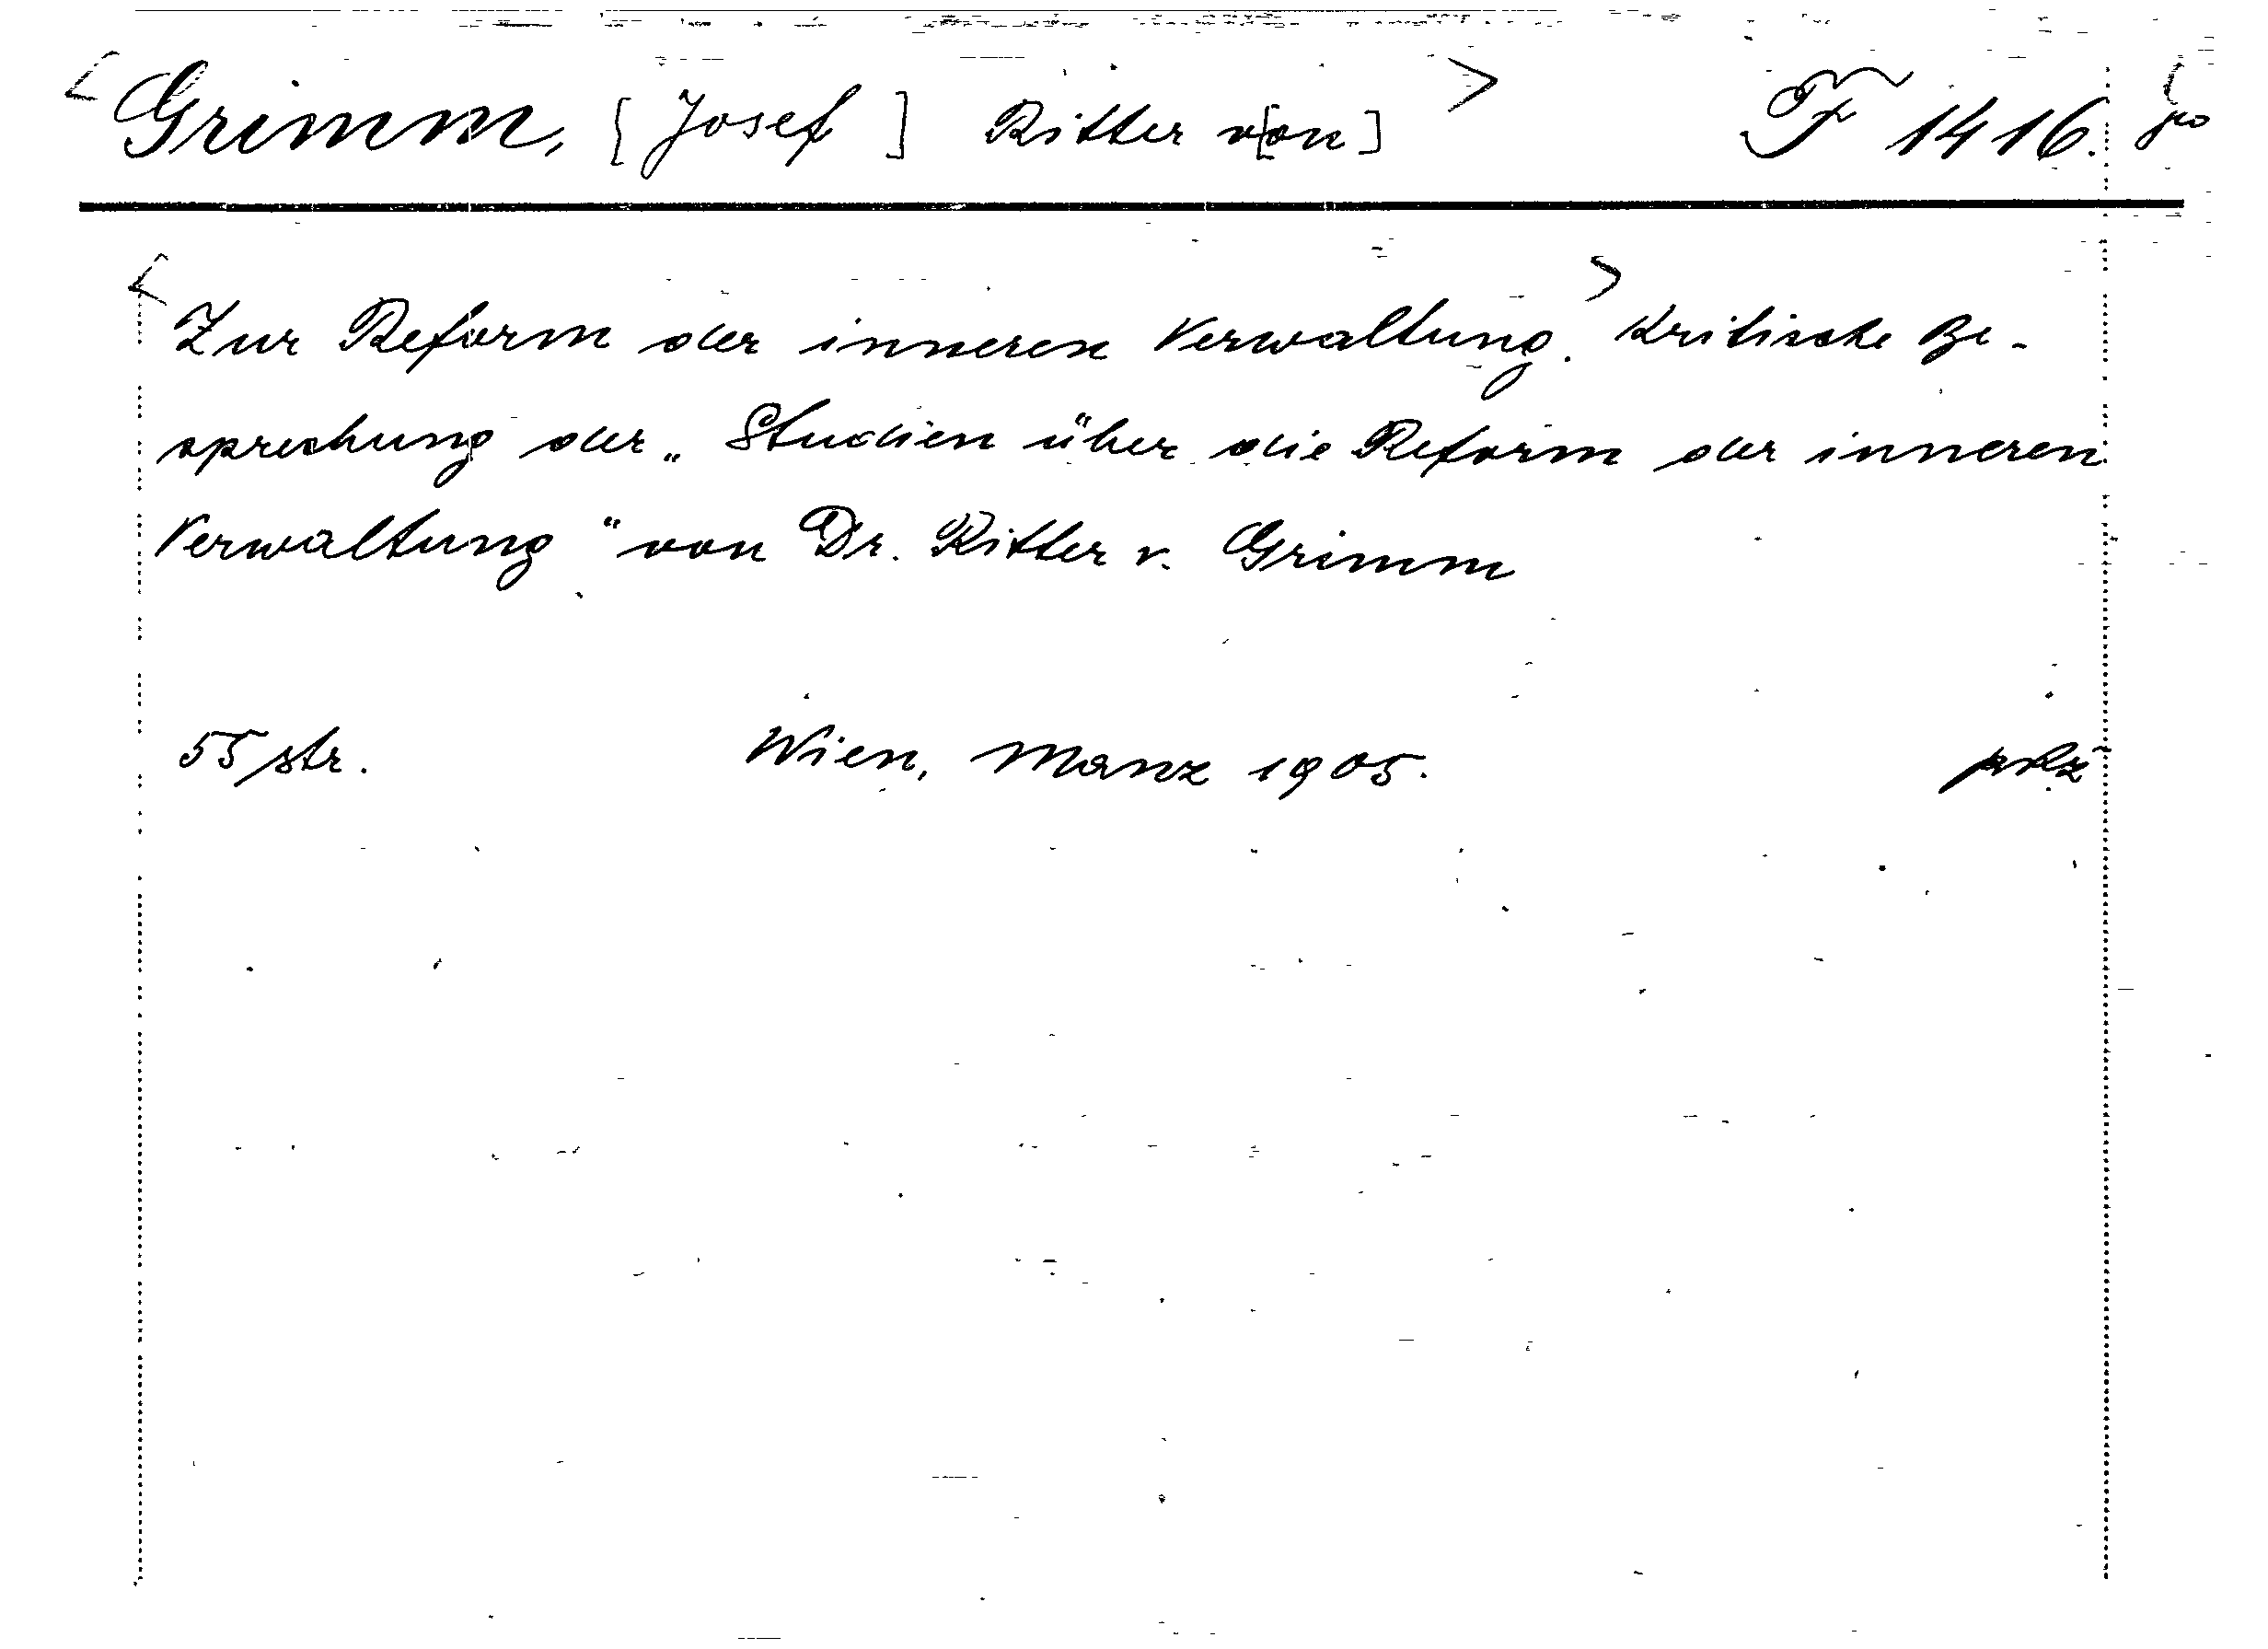 <Grimm, [Josef] Ritter v[on]> F 1416.
<Zur Reform der inneren Verwaltung.> Kritische Be-
sprechung der „Studien über die Reform der inneren
Verwaltung" von Dr. Ritter v. Grimm
55 str. Wien, Manz 1905.